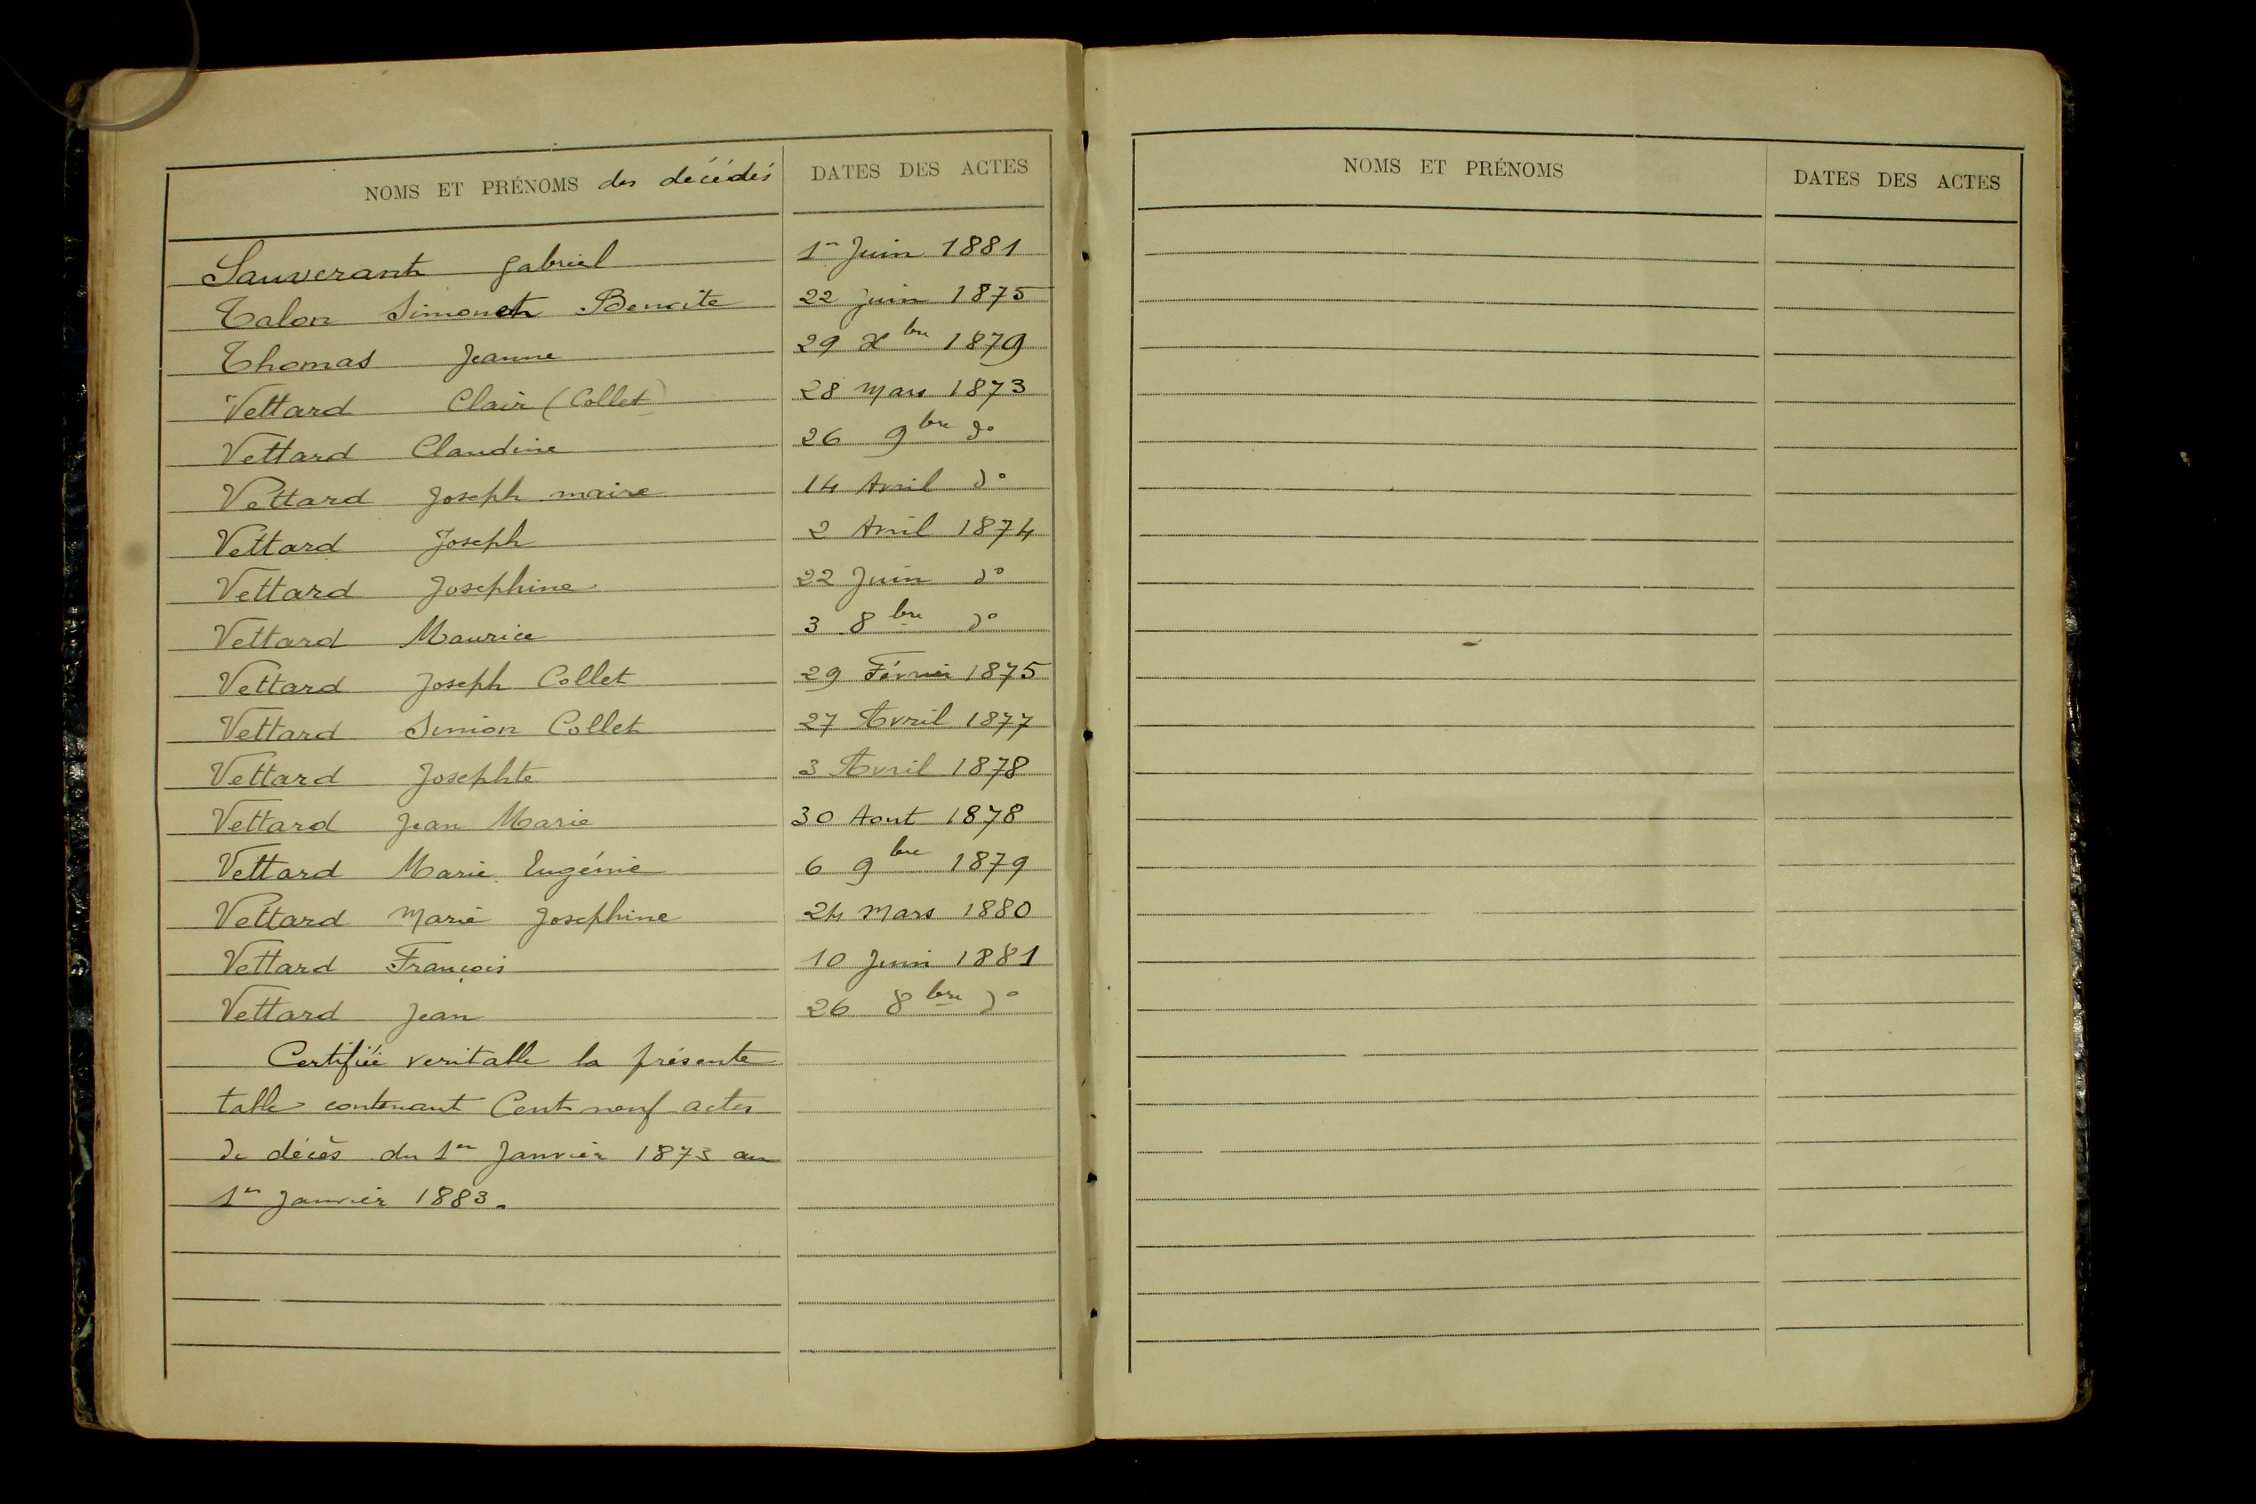 NOMS ET PRÉNOMS des décédés DATES DES ACTES
Sauverant gabriel 1er Juin 1881
Talon Simonet Benoite 22 Juin 1875
Thomas Jeanne 29 Xbre 1879
Vettard Clair (Collet) 28 Mars 1873
Vettard Claudine 26 9bre do
Vettard Joseph maire 14 Avril do
Vettard Joseph 2 Avril 1874
Vettard Josephine 22 Juin do
Vettard Maurice 3 8bre do
Vettard Joseph Collet 29 Février 1875
Vettard Simon Collet 27 Avril 1877
Vettard Josephte 3 Avril 1878
Vettard Jean Marie 30 Aout 1878
Vettard Marie Eugénie 6 9bre 1879
Vettard Marie Josephine 24 Mars 1880
Vettard François 10 Juin 1881
Vettard Jean 26 8bre do
Certifiée veritable la présente
table contenant Cent neuf actes
de décès du 1er Janvier 1873 au
1er Janvier 1883.
NOMS ET PRÉNOMS DATES DES ACTES